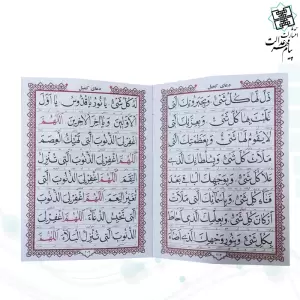 دعای کمیل
ذَلَّ لَها كُلُّ شَیْءٍ وَ بِجَبَرُوتِكَ الَّتی
غَلَبْتَ بِها كُلَّ شَیْءٍ وَ بِعِزَّتِكَ الَّتی
لا یَقُومُ لَها شَیْءٌ وَ بِعَظَمَتِكَ الَّتی
مَلَأَتْ كُلَّ شَیْءٍ وَ بِسُلْطانِكَ الَّذی
عَلا كُلَّ شَیْءٍ وَ بِوَجْهِكَ الْباقی بَعْدَ
فَناءِ كُلِّ شَیْءٍ وَ بِأَسْمائِكَ الَّتی مَلَأَتْ
أَرْكانَ كُلِّ شَیْءٍ وَ بِعِلْمِكَ الَّذی أَحاطَ
بِكُلِّ شَیْءٍ وَ بِنُورِ وَجْهِكَ الَّذی أَضاءَ
دعای کمیل
لَهُ كُلُّ شَیْءٍ یا نُورُ یا قُدُّوسُ یا أَوَّلَ
الْأَوَّلینَ وَ یا آخِرَ الْآخِرینَ اَللّهُمَّ
اغْفِرْ لِیَ الذُّنُوبَ الَّتی تَهْتِكُ الْعِصَمَ
اَللّهُمَّ اغْفِرْ لِیَ الذُّنُوبَ الَّتی تُنْزِلُ
النِّقَمَ اَللّهُمَّ اغْفِرْ لِیَ الذُّنُوبَ الَّتی
تُغَیِّرُ النِّعَمَ اَللّهُمَّ اغْفِرْ لِیَ الذُّنُوبَ
الَّتی تَحْبِسُ الدُّعاءَ اَللّهُمَّ اغْفِرْ لِیَ
الذُّنُوبَ الَّتی تُنْزِلُ الْبَلاءَ اَللّهُمَّ